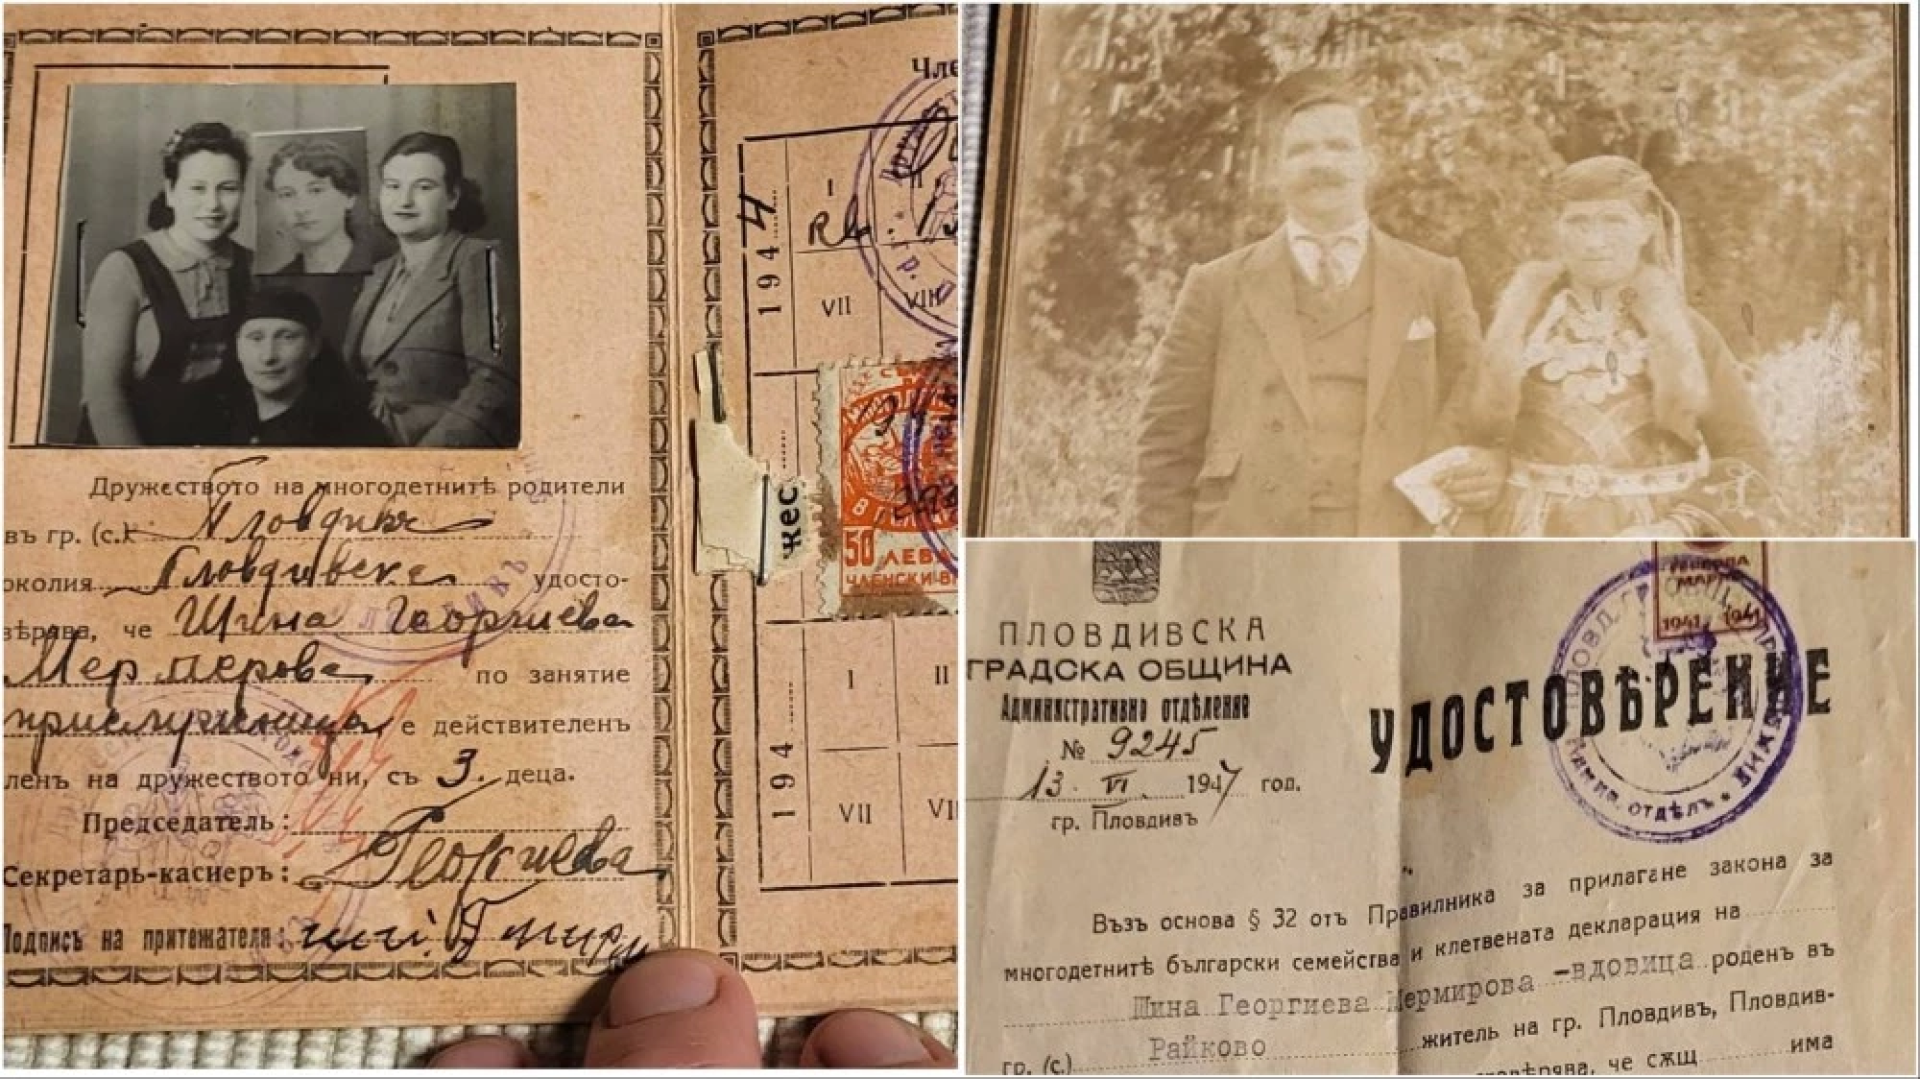 Дружеството на многодетнитѣ родители
въ гр. (с.) Пловдивъ
околия Пловдивска удосто-
вѣрява, че Шина Георгиева
Мермерова по занятие
прислужница е действителенъ
ленъ на дружеството ни, съ 3. деца.
Председатель:
Секретарь-касиеръ: Георгиева
Подпись на притежателя:
Чле
1944
I
VII VIII
жес
50 ЛЕВА
ЧЛЕНСКИ В
194
I II
VII VI
ПЛОВДИВСКА
ГРАДСКА ОБЩИНА
Административно отдѣление
№ 9245
13. VI. 1947 год.
гр. Пловдивъ
1941 1941
УДОСТОВѢРЕНИЕ
Възъ основа § 32 отъ Правилника за прилагане закона за
многодетнитѣ български семейства и клетвената декларация на
Шина Георгиева Мермирова -вдовица роденъ въ
гр. (с.) Райково житель на гр. Пловдивъ, Пловдив-
че сѫщ има